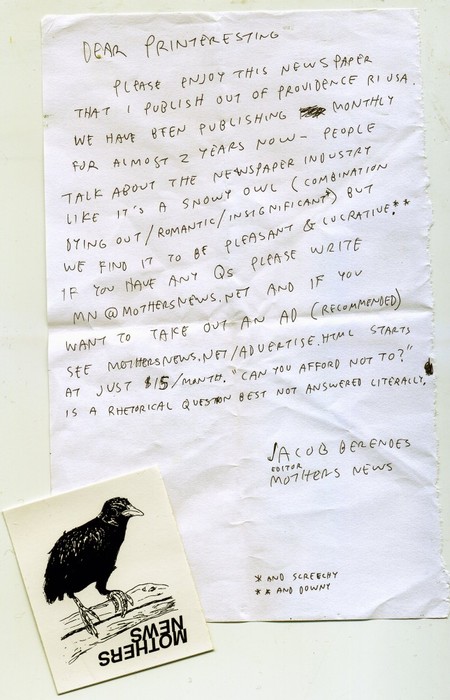 DEAR PRINTERESTING
PLEASE ENJOY THIS NEWSPAPER
THAT I PUBLISH OUT OF PROVIDENCE RI USA.
WE HAVE BEEN PUBLISHING MONTHLY
FOR ALMOST 2 YEARS NOW - PEOPLE
TALK ABOUT THE NEWSPAPER INDUSTRY
LIKE IT'S A SNOWY OWL (COMBINATION
DYING OUT/ROMANTIC/INSIGNIFICANT*) BUT
WE FIND IT TO BE PLEASANT & LUCRATIVE.**
IF YOU HAVE ANY QS PLEASE WRITE
MN@MOTHERSNEWS.NET AND IF YOU
WANT TO TAKE OUT AN AD (RECOMMENDED)
SEE MOTHERSNEWS.NET/ADVERTISE.HTML STARTS
AT JUST $15/MONTH. "CAN YOU AFFORD NOT TO?"
IS A RHETORICAL QUESTION BEST NOT ANSWERED LITERALLY.
JACOB BERENDES
EDITOR
MOTHERS NEWS
* AND SCREECHY
** AND DOWNY
MOTHERS
NEWS